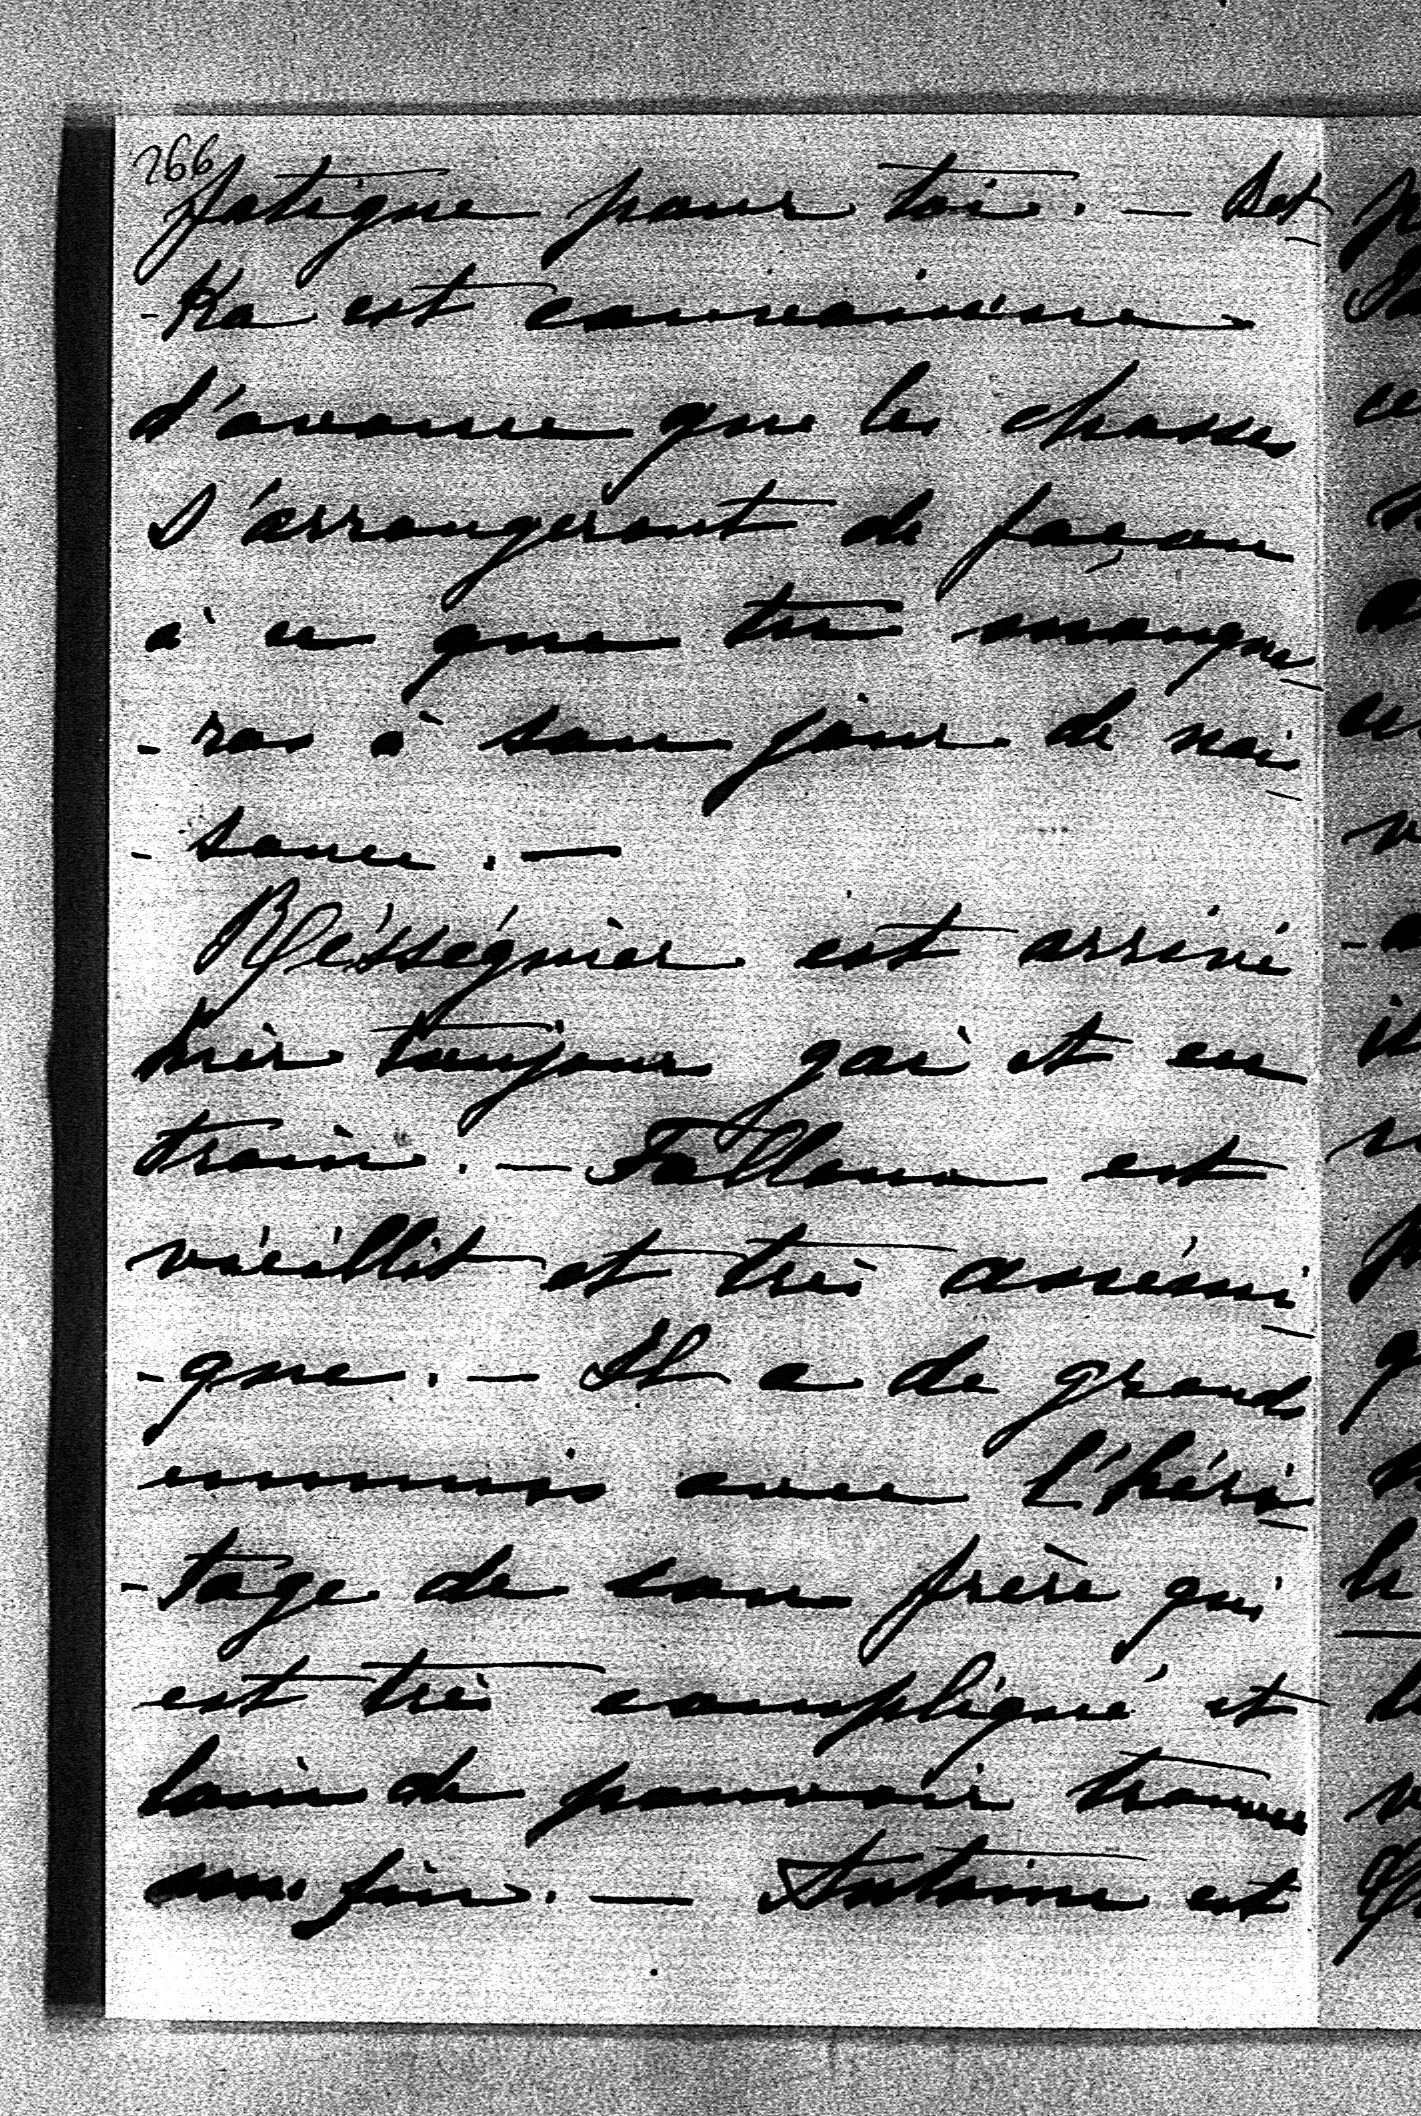 266
fatigue pour toi. — Bet
- Ka est convaincue
d'avance que les choses
s'arrangeront de façon
à ce que tu manque
- ras à son jour de nais
- sance. —
Réssèguier est arrivé
hier toujours gai et en
train. — Falloux est
vieillit et très anémi
- que. — Il a de grands
ennuis avec l'héri
- tage de son frère qui
est très compliqué et
loin de pouvoir trouver
une fin. — Antoine est